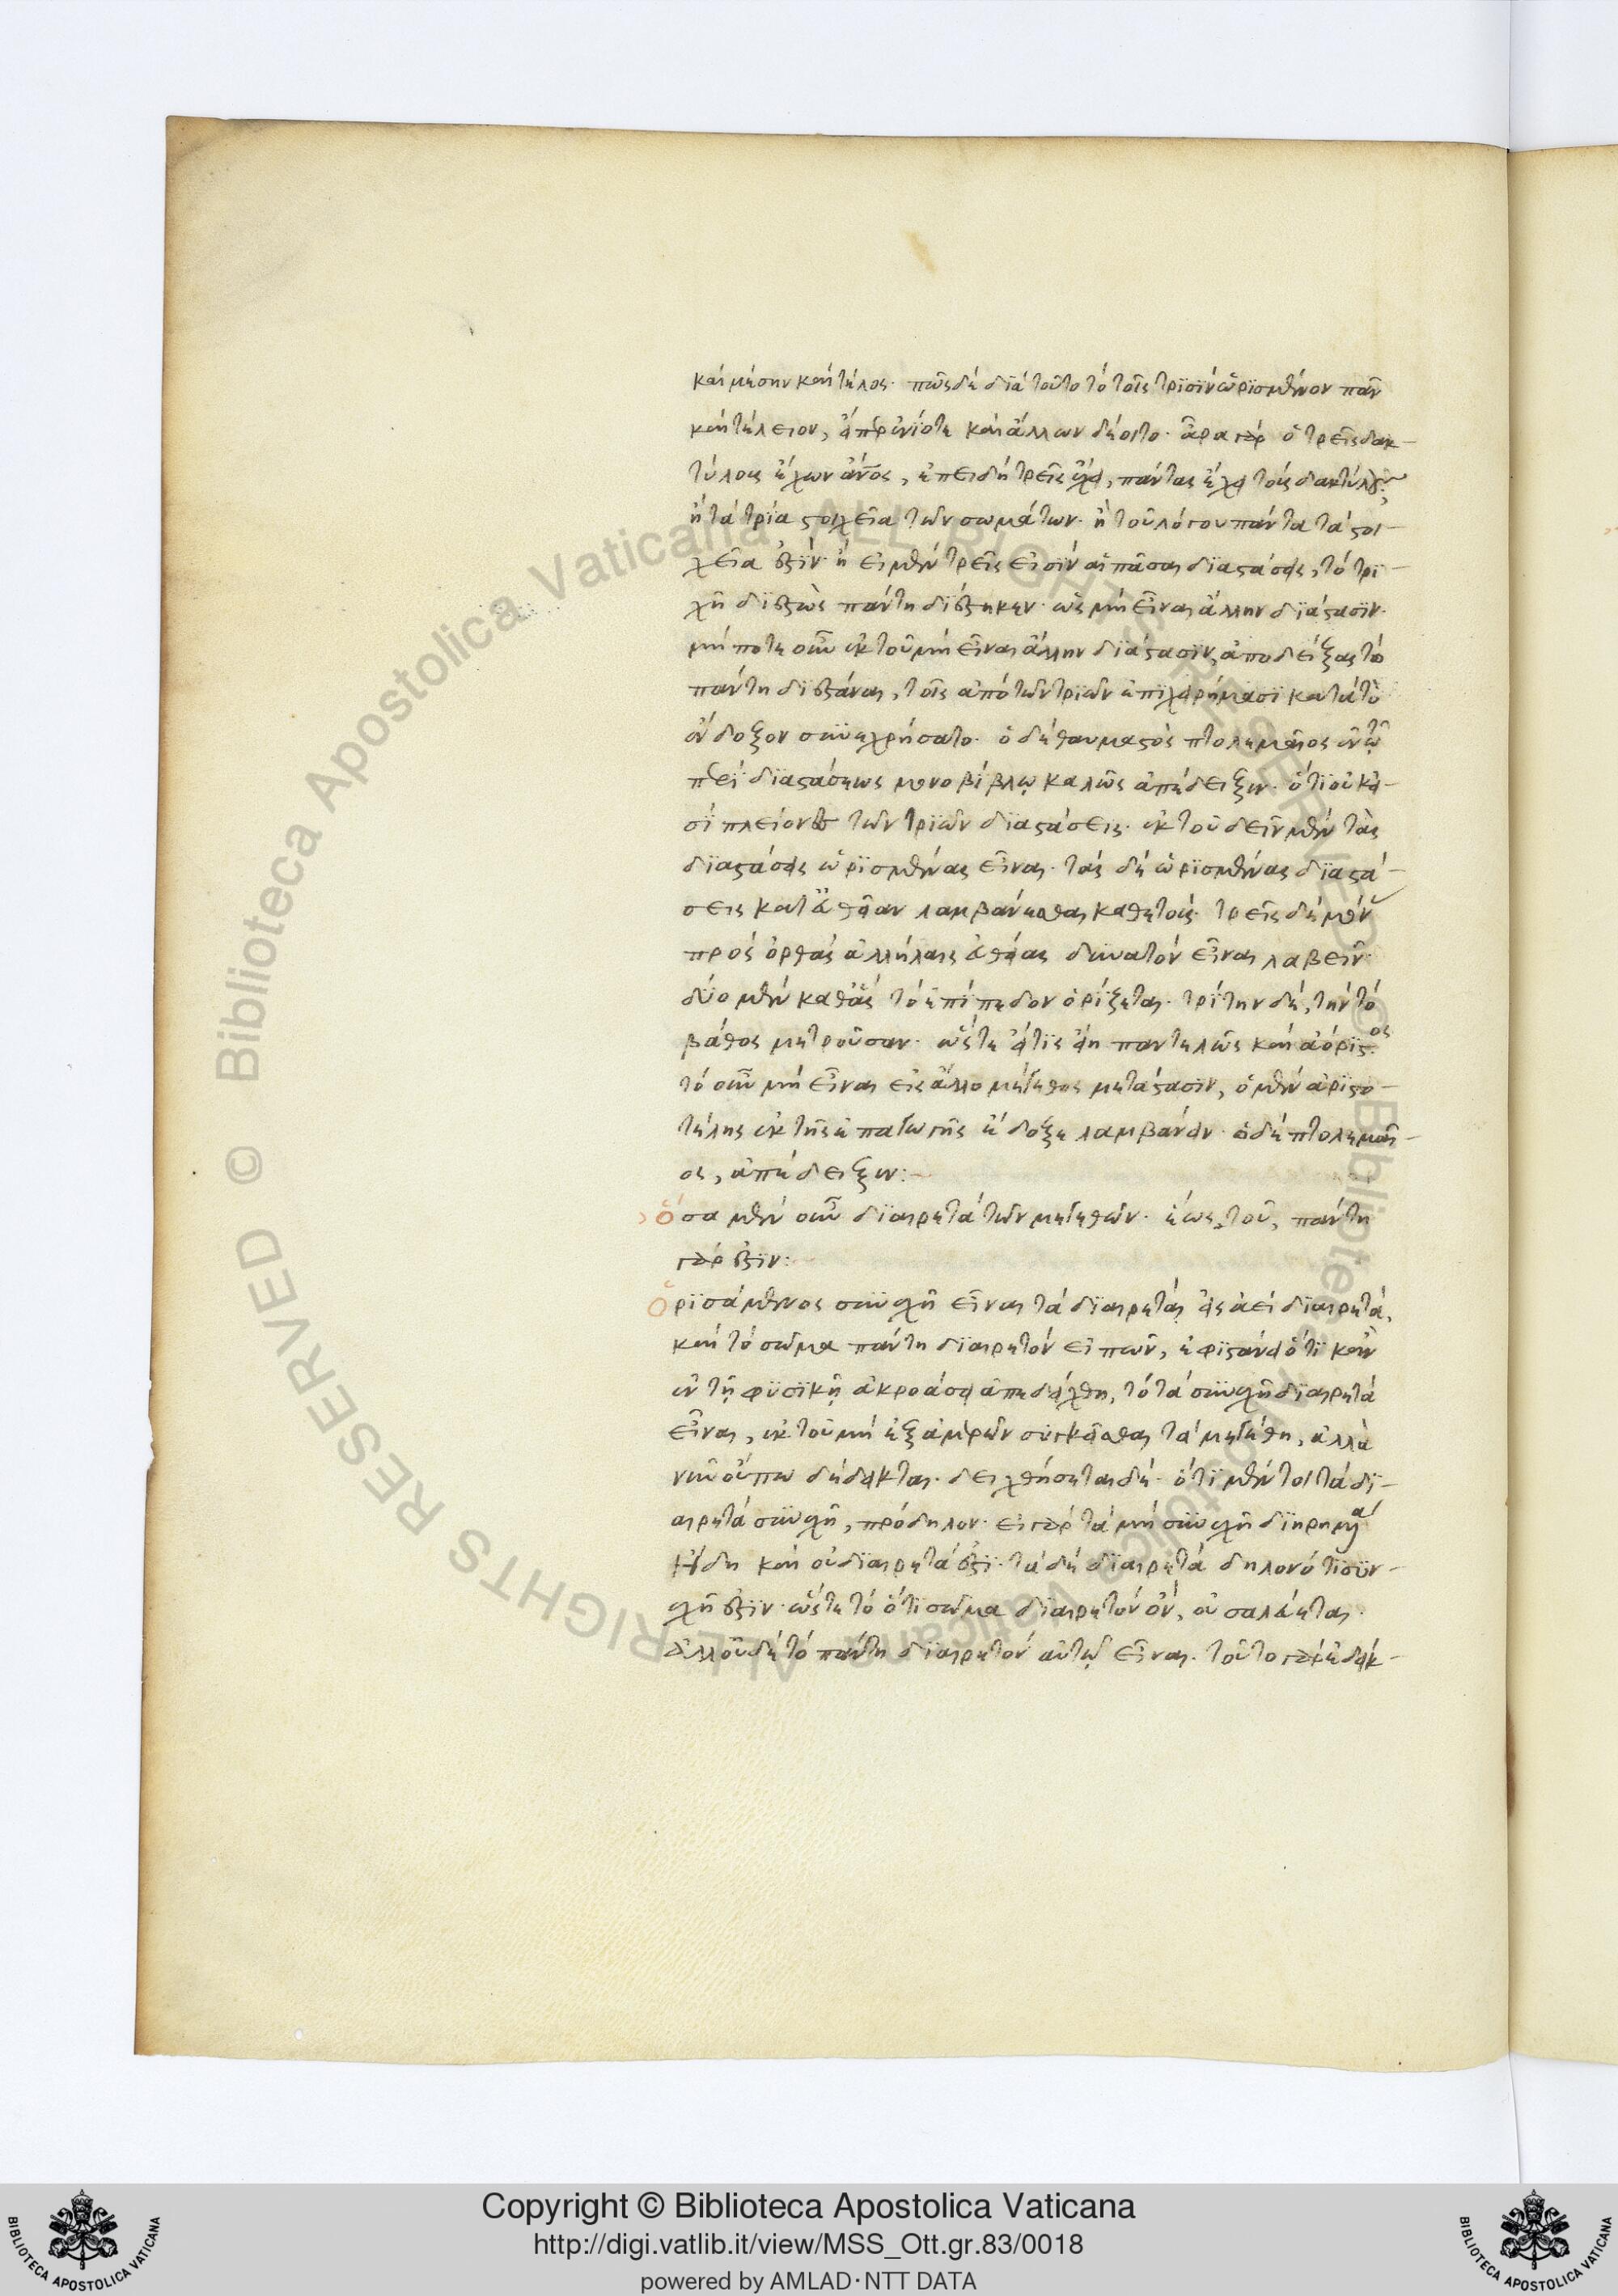 καὶ μέσην καὶ τέλος· πῶς δὲ διὰ τοῦτο τὸ τοῖς τρισὶν ὡρισμένον πᾶν
καὶ τέλειον, εἴπερ ἐνίοτε καὶ ἄλλων δέοιτο· ἆρα γὰρ ὁ τρεῖς δακ-
τύλους ἔχων ἄνος, ἐπειδὴ τρεῖς ἔχει, πάντας ἔχει τοὺς δακτύλους·
ἢ τὰ τρία στοιχεῖα τῶν σωμάτων· ἢ τοῦ λόγου πάντα τὰ στοι-
χεῖα ἐστίν· ἢ εἰ μὲν τρεῖς εἰσὶν αἱ πᾶσαι διαστάσεις, τὸ τρι-
χῆ διεστὼς πάντη διέστηκεν· ὡς μὴ εἶναι ἄλλην διάστασιν·
μήποτε οὖν ἐκ τοῦ μὴ εἶναι ἄλλην διάστασιν, ἀποδείξας τὸ
πάντη διεστάναι, τοῖς ἀπὸ τῶν τριῶν ἐπιχειρήμασι κατὰ τὸ
ἔνδοξον συνεχρήσατο· ὁ δὲ θαυμαστὸς πτολεμαῖος ἐν τῷ
περὶ διαστάσεως μονοβίβλω καλῶς ἀπέδειξεν· ὅτι οὐκ εἰ-
σὶ πλείονες τῶν τριῶν διαστάσεις· ἐκ τοῦ δεῖν μὲν τὰς
διαστάσεις ὡρισμένας εἶναι· τὰς δὲ ὡρισμένας διαστά-
σεις κατ' εὐθεῖαν λαμβάνεσθαι καθέτους· τρεῖς δὲ μόν
πρὸς ὀρθὰς ἀλλήλαις εὐθείας δυνατὸν εἶναι λαβεῖν·
δύο μὲν καθ' ἃς τὸ ἐπίπεδον ὁρίζεται· τρίτην δὲ, τὴν τὸ
βάθος μετροῦσαν· ὥστε εἴ τις εἴη παντελῶς καὶ ἀόριστος
τὸ οὖν μὴ εἶναι εἰς ἄλλο μέγεθος μετάστασιν, ὁ μὲν ἀριστο-
τέλης ἐκ τῆς ἐπαγωγῆς ἔδοξε λαμβάνειν· ὁ δὲ πτολεμαῖ-
ος, ἀπέδειξεν:-
ὅσα μὲν οὖν διαιρετὰ τῶν μεγεθῶν· ἕως, τοῦ, πάντη
γάρ ἐστιν:
Ὁρισάμενος συνεχῆ εἶναι τὰ διαιρετὰ εἰς ἀεὶ διαιρετά,
καὶ τὸ σῶμα πάντη διαιρετὸν εἰπὼν, ἐφιστάνει ὅτι κἂν
ἐν τῇ φυσικῇ ἀκροάσει ἀπεδείχθη, τὸ τὰ συνεχῆ διαιρετὰ
εἶναι, ἐκ τοῦ μὴ ἐξ ἀμερῶν συγκεῖσθαι τὰ μεγέθη, ἀλλὰ
νῦν οὔπω δέδεικται· δειχθήσεται δέ· ὅτι μέν τοι τὰ δι-
αιρετὰ συνεχῆ, πρόδηλον· εἰ γὰρ τὰ μὴ συνεχῆ διῃρημένα
ἤδη καὶ οὐ διαιρετά ἐστι· τὰ δὲ διαιρετὰ δηλονότι συν-
εχῆ ἐστιν· ὥστε τὸ ὅτι σῶμα διαιρετὸν ὂν, οὐ σαλεύεται·
ἀλλ' οὐδὲ τὸ πάντη διαιρετὸν αὐτῷ εἶναι· τοῦτο γὰρ ἐδείκ-
Copyright © Biblioteca Apostolica Vaticana
http://digi.vatlib.it/view/MSS_Ott.gr.83/0018
powered by AMLAD·NTT DATA
© Biblioteca Apostolica Vaticana ALL RIGHTS RESERVED © Biblioteca Apostolica Vaticana ALL RIGHTS RESERVED
BIBLIOTECA APOSTOLICA VATICANA
BIBLIOTECA APOSTOLICA VATICANA